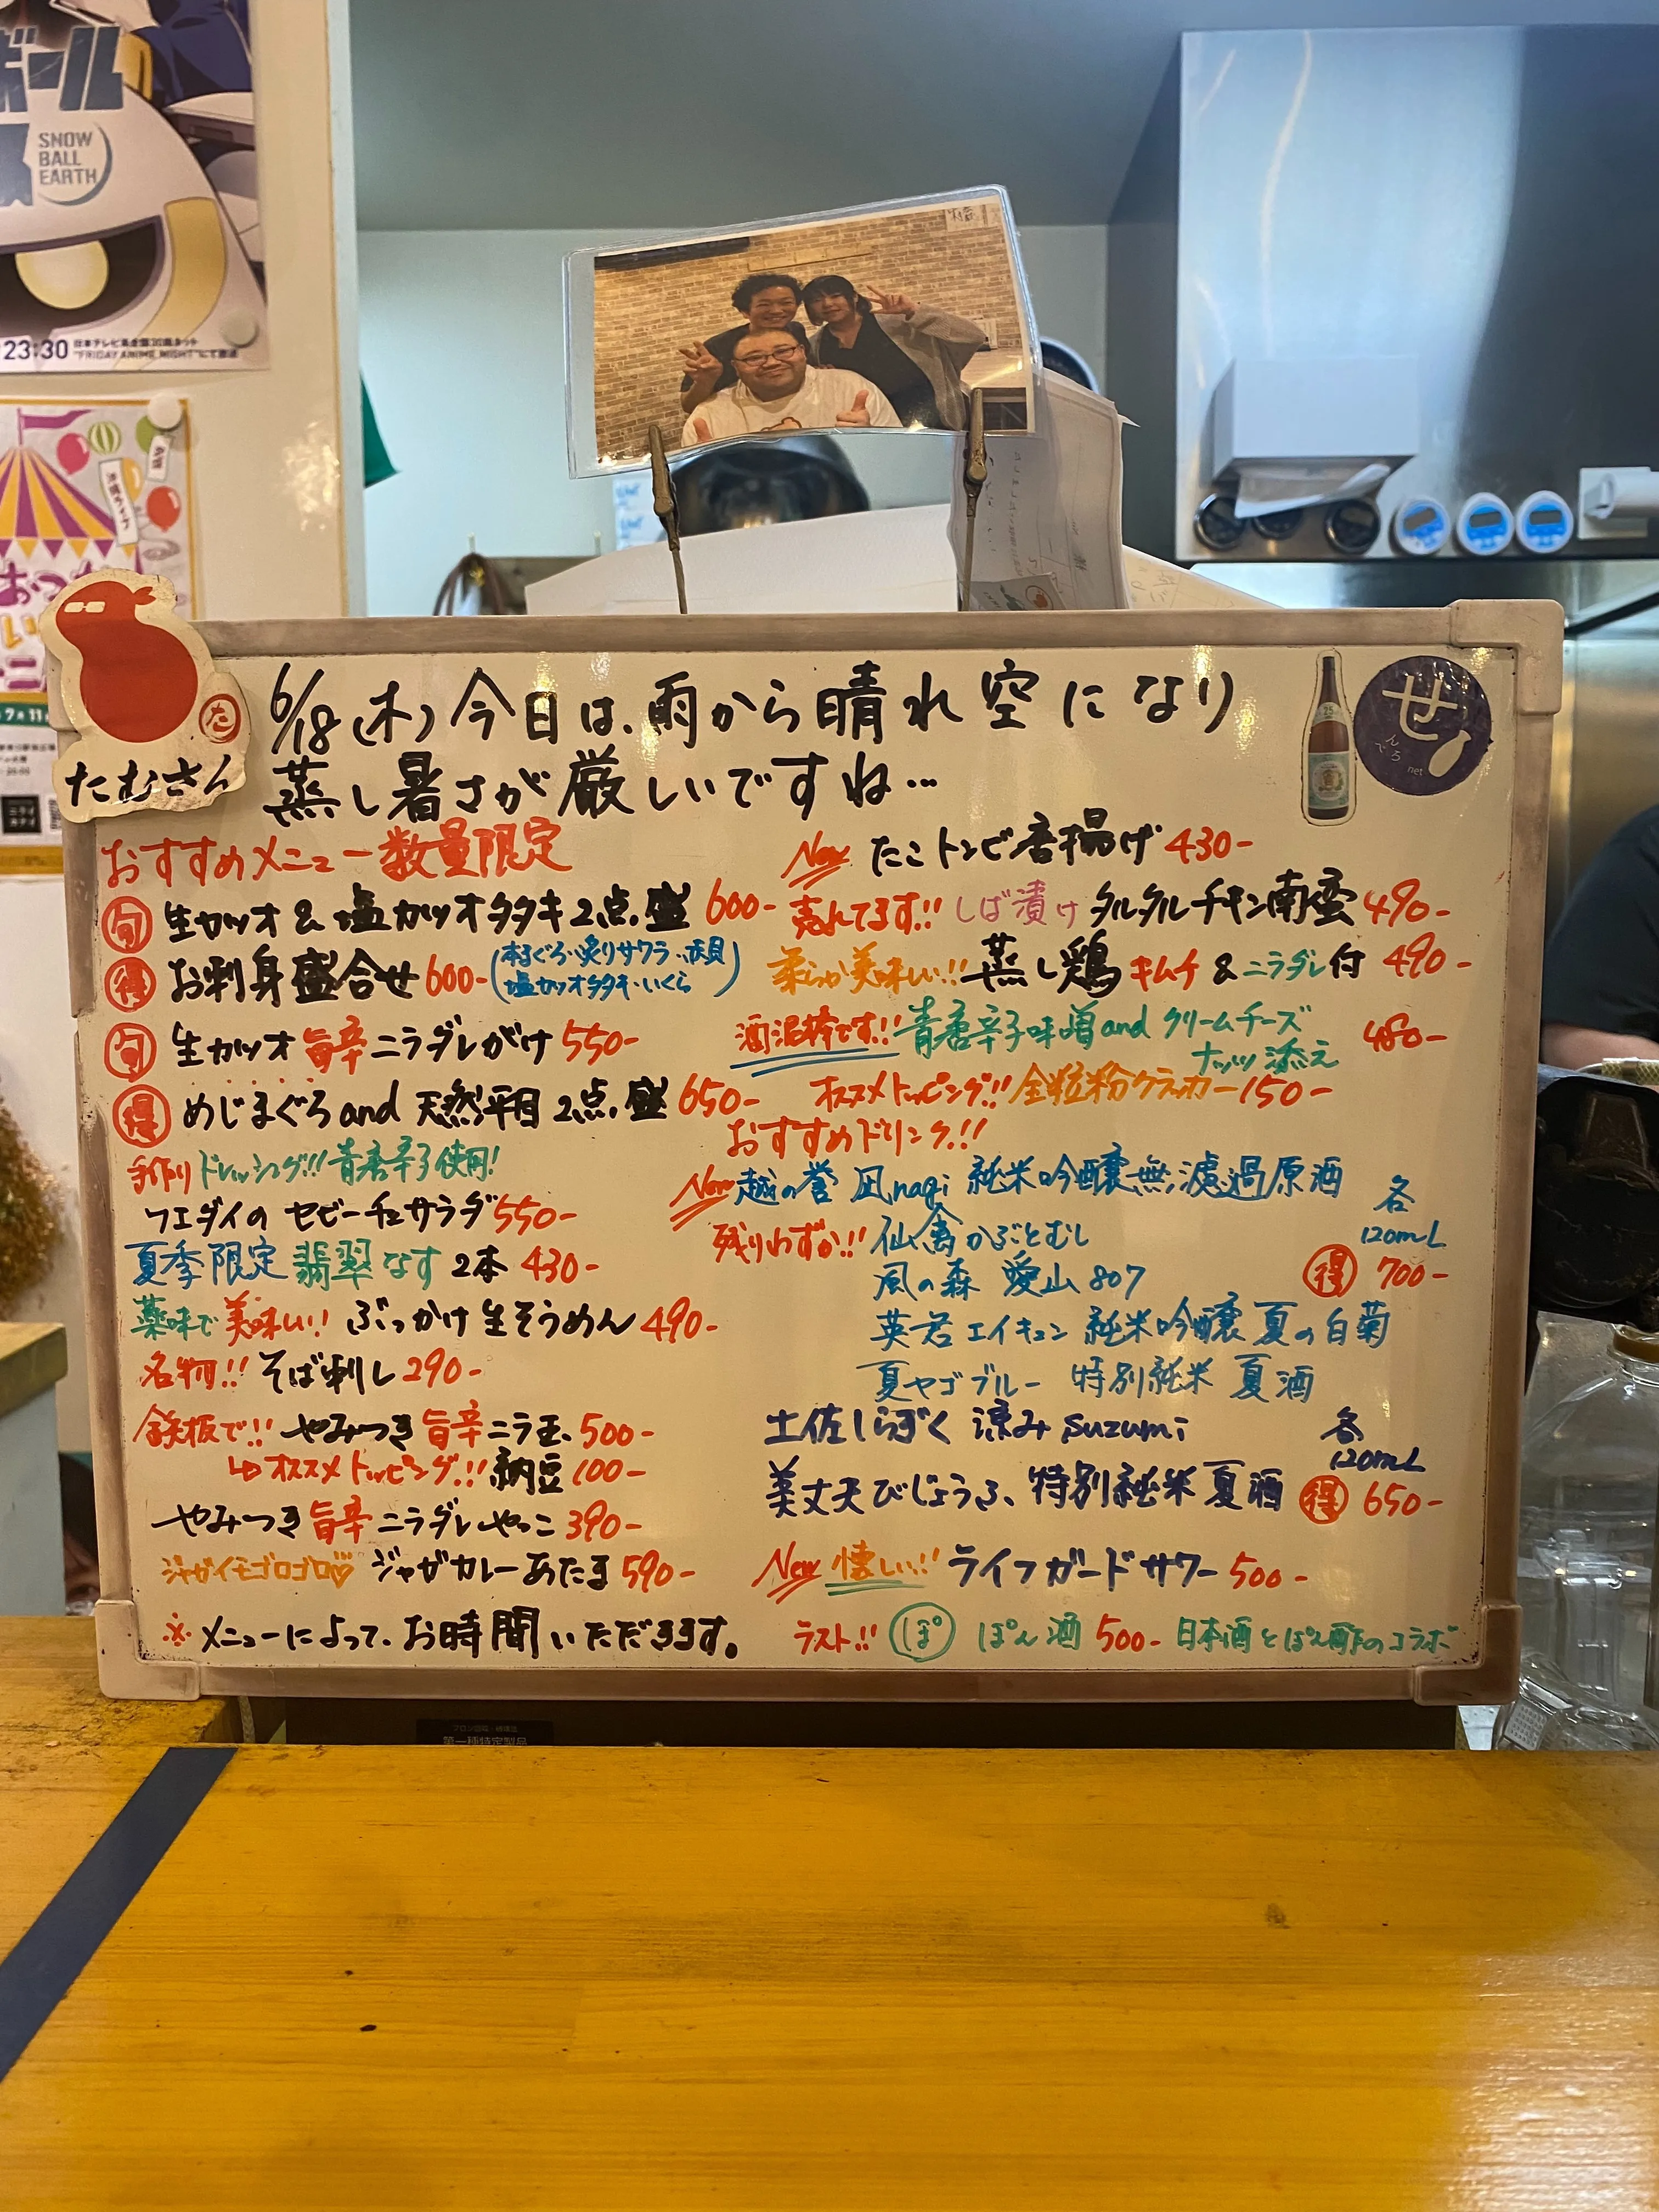 ボール
SNOW
BALL
EARTH
23:30 日本テレビ系全国30局ネット
"FRIDAY ANIME NIGHT"にて放送
たむさん
せ
んべろ
net
6/18(木)今日は、雨から晴れ空になり
蒸し暑さが厳しいですね…
おすすめメニュー数量限定
旬 生カツオ&塩カツオタタキ2点盛 600-
得 お刺身盛合せ 600- (本まぐろ・炙りサワラ・赤貝
塩カツオタタキ・いくら)
旬 生カツオ旨辛ニラダレがけ 550-
得 めじまぐろand天然平目2点盛 650-
手作りドレッシング!!青唐辛子使用!
フエダイのセビーチェサラダ 550-
夏季限定 翡翠なす 2本 430-
薬味で美味い!! ぶっかけ生そうめん 490-
名物!! そば刺し 290-
鉄板で!! やみつき旨辛ニラ玉 500-
↳オススメトッピング!! 納豆 100-
やみつき旨辛ニラダレやっこ 390-
ジャガイモゴロゴロ♡ ジャガカレーあたま 590-
※メニューによって、お時間いただきます。
New たこトンビ唐揚げ 430-
売れてます!! しば漬けタルタルチキン南蛮 490-
柔らか美味しい!! 蒸し鶏 キムチ&ニラダレ付 490-
酒泥棒です!! 青唐辛子味噌andクリームチーズ
ナッツ添え 480-
オススメトッピング!! 全粒粉クラッカー 150-
おすすめドリンク!!
New 越の誉 凪nagi 純米吟醸無濾過原酒
残りわずか!! 仙禽かぶとむし
風の森 愛山807
英君エイキュン 純米吟醸 夏の白菊
夏ヤゴブルー 特別純米 夏酒
各
120mL
得 700-
土佐しらぎく 涼み suzumi
美丈夫びじょうふ、特別純米 夏酒
各
120mL
得 650-
New 懐しい!! ライフガードサワー 500-
ラスト!! ぽ ぽん酒 500- 日本酒とぽん酢のコラボ
第一種特定製品